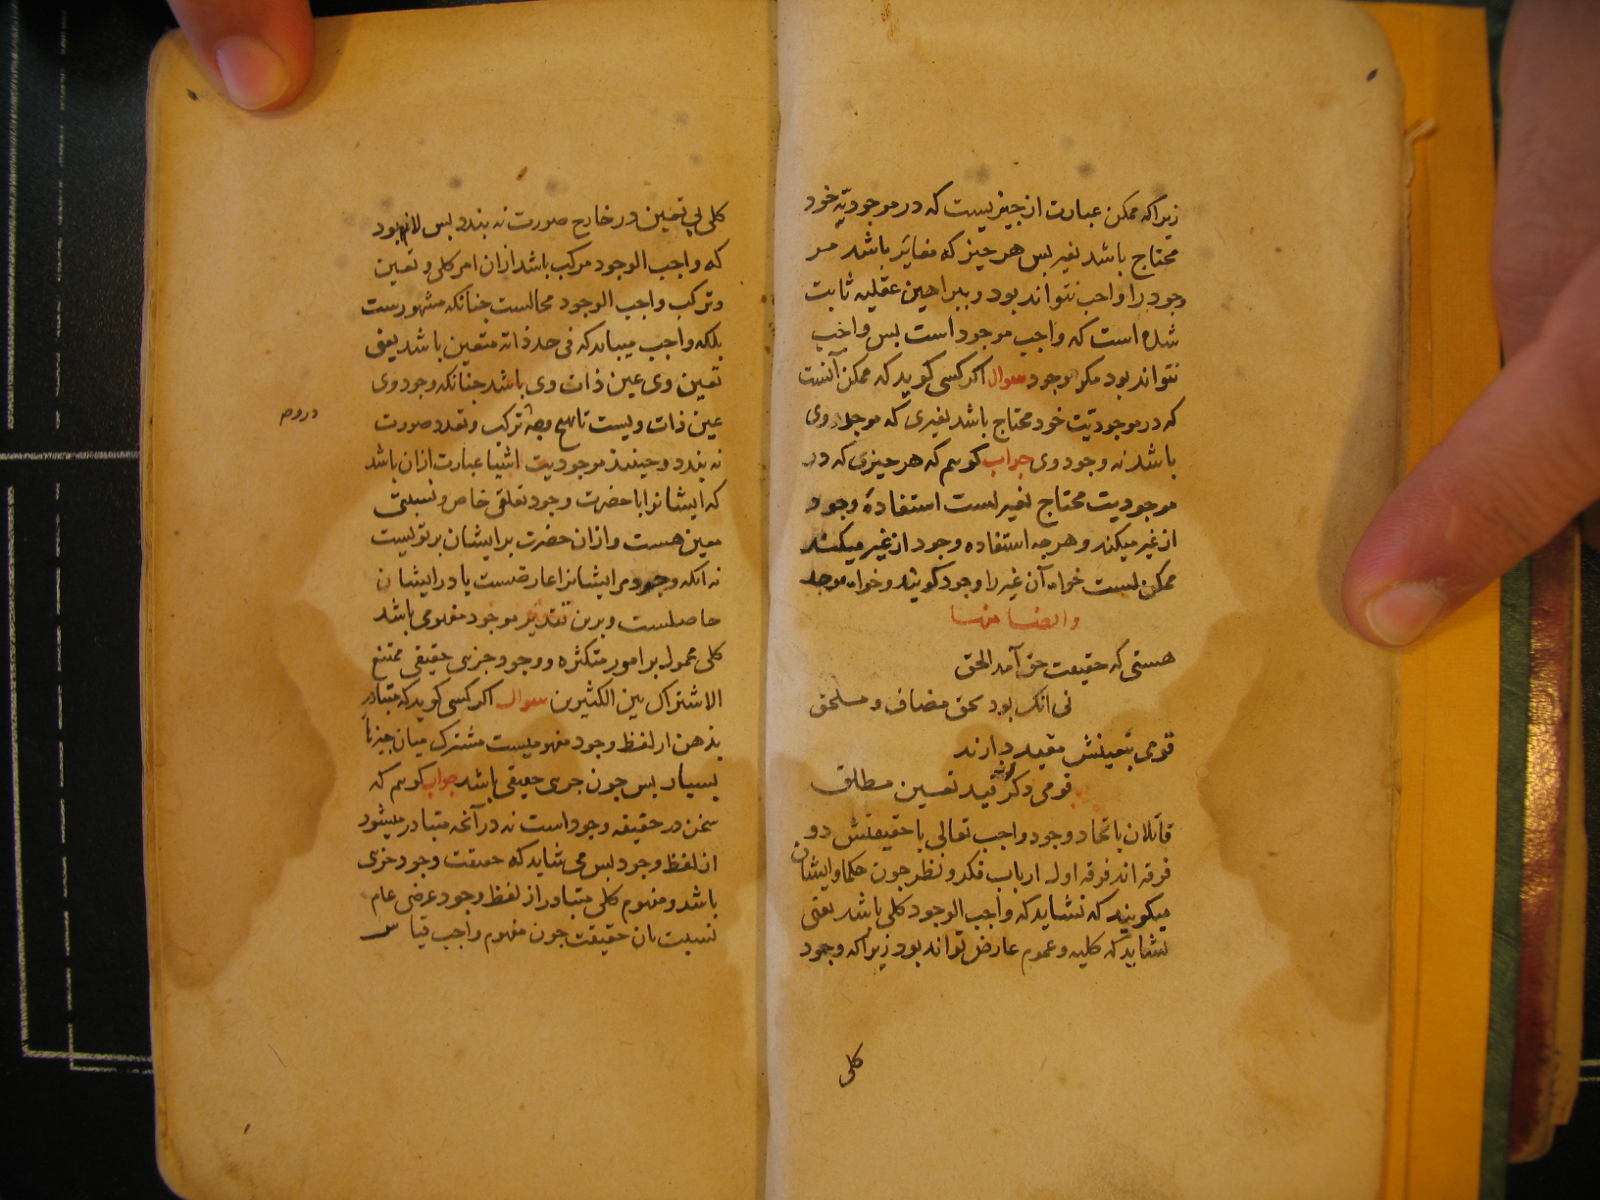 زیراکه ممکن عبارت از چیزیست که در موجودیّة خود
محتاج باشد بغیر بس هر چیز که مغایر باشد مر
وجود را واجب نتواند بود و ببراهین عقلیه ثابت
شده است که واجب موجود است بس واجب
نتواند بود مکر وجود سوال اکر کسی کوید که ممکن آنست
که در موجودیّت خود محتاج باشد بغیری که موجد وی
باشد نه وجود وی جواب کویم که هر چیزی که در
موجودیت محتاج بغیرلست استفادهٔ وجود
از غیر میکند و هرجه استفاده وجود از غیر میکند
ممکن لست خواه آن غیر را وجود کویند و خواه موجد
وایضا منها
هستی که حقیقت حق آمد الحق
نی انک بود بحق مضاف و ملحق
قومی بتعینش مقید دارند
قومی دکر ز قید تعین مطلق
قائلان باتحاد وجود واجب تعالی با حقیقتش دو
فرقه اند فرقه اول ارباب فکر و نظر جون حکما و ایشان
میکویند که نشاید که واجب الوجود کلی باشد یعنی
نشاید که کلیه و عموم عارض تواند بود زیراکه وجود
کلی
کلی بی تعین در خارج صورت نه بندد بس لازم بود
که واجب الوجود مرکب باشد ازان امر کلی و تعین
وترکب واجب الوجود محالست جنانکه مشهورست
بلکه واجب میباید که فی حد ذاته متعین باشد یعنی
تعین وی عین ذات وی باشد جنانکه وجود وی
عین ذات ویست تا هیچ وجه ترکب و تعدد صورت
دروم
نه بندد و حینئذ موجودیت اشیا عبارت ازان باشد
که ایشانرا با حضرت وجود تعلقی خاص و نسبتی
معین هست و ازان حضرت بر ایشان برتویست
نه انکه وجود مر ایشانرا عارضست یا در ایشان
حاصلست و برین تقدیر موجود مفهومی باشد
کلی محمول بر امور متکثره و وجود جزیی حقیقی ممتنع
الاشتراک بین الکثیرین سوال اکر کسی کوید که متبادر
بذهن از لفظ وجود مفهومیست مشترک میان جیزها
بسیار بس جون جزیی حقیقی باشد جواب کویم که
سخن در حقیقه وجود است نه در آنچه متبادر میشود
از لفظ وجود بس می شاید که حقیقت وجود جزیی
باشد و مفهوم کلی متبادر از لفظ وجود عرض عام
نسبت بان حقیقت جون مفهوم واجب قیاس